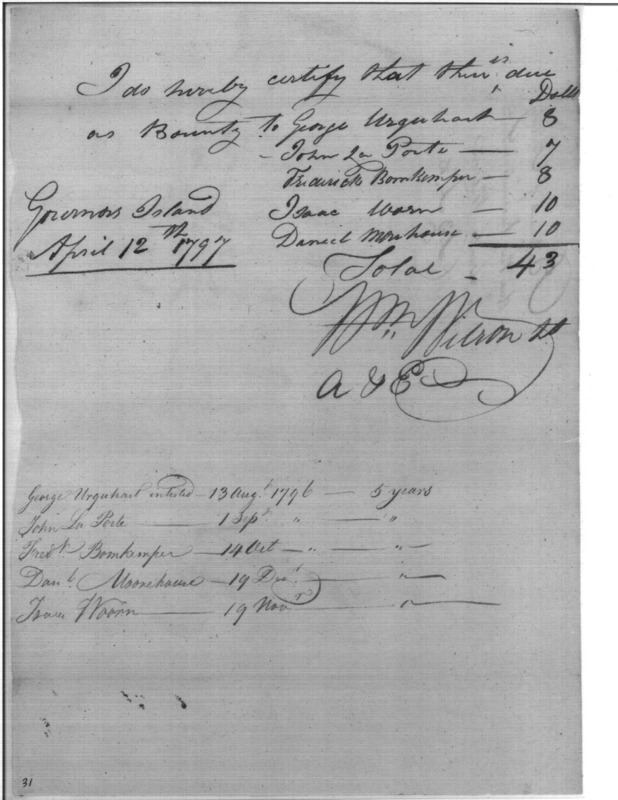 I do hereby certify that there is due
Dolls
as Bounty to George Urquhart — 8
John La Porte — 7
Frederick Bomkemper — 8
Isaac Worn — 10
Daniel Morehouse — 10
Total — 43
Governors Island
April 12th 1797
Wm Wilson Lt
A & E
George Urquhart inlisted — 13 Augt. 1796 — 5 years
John La Porte — 1 Sept " — "
Fredk Bomkemper — 14 Oct — " — "
Danl. Moorehouse — 19 Decr. "
Isaac Woorn — 19 Novr "
31